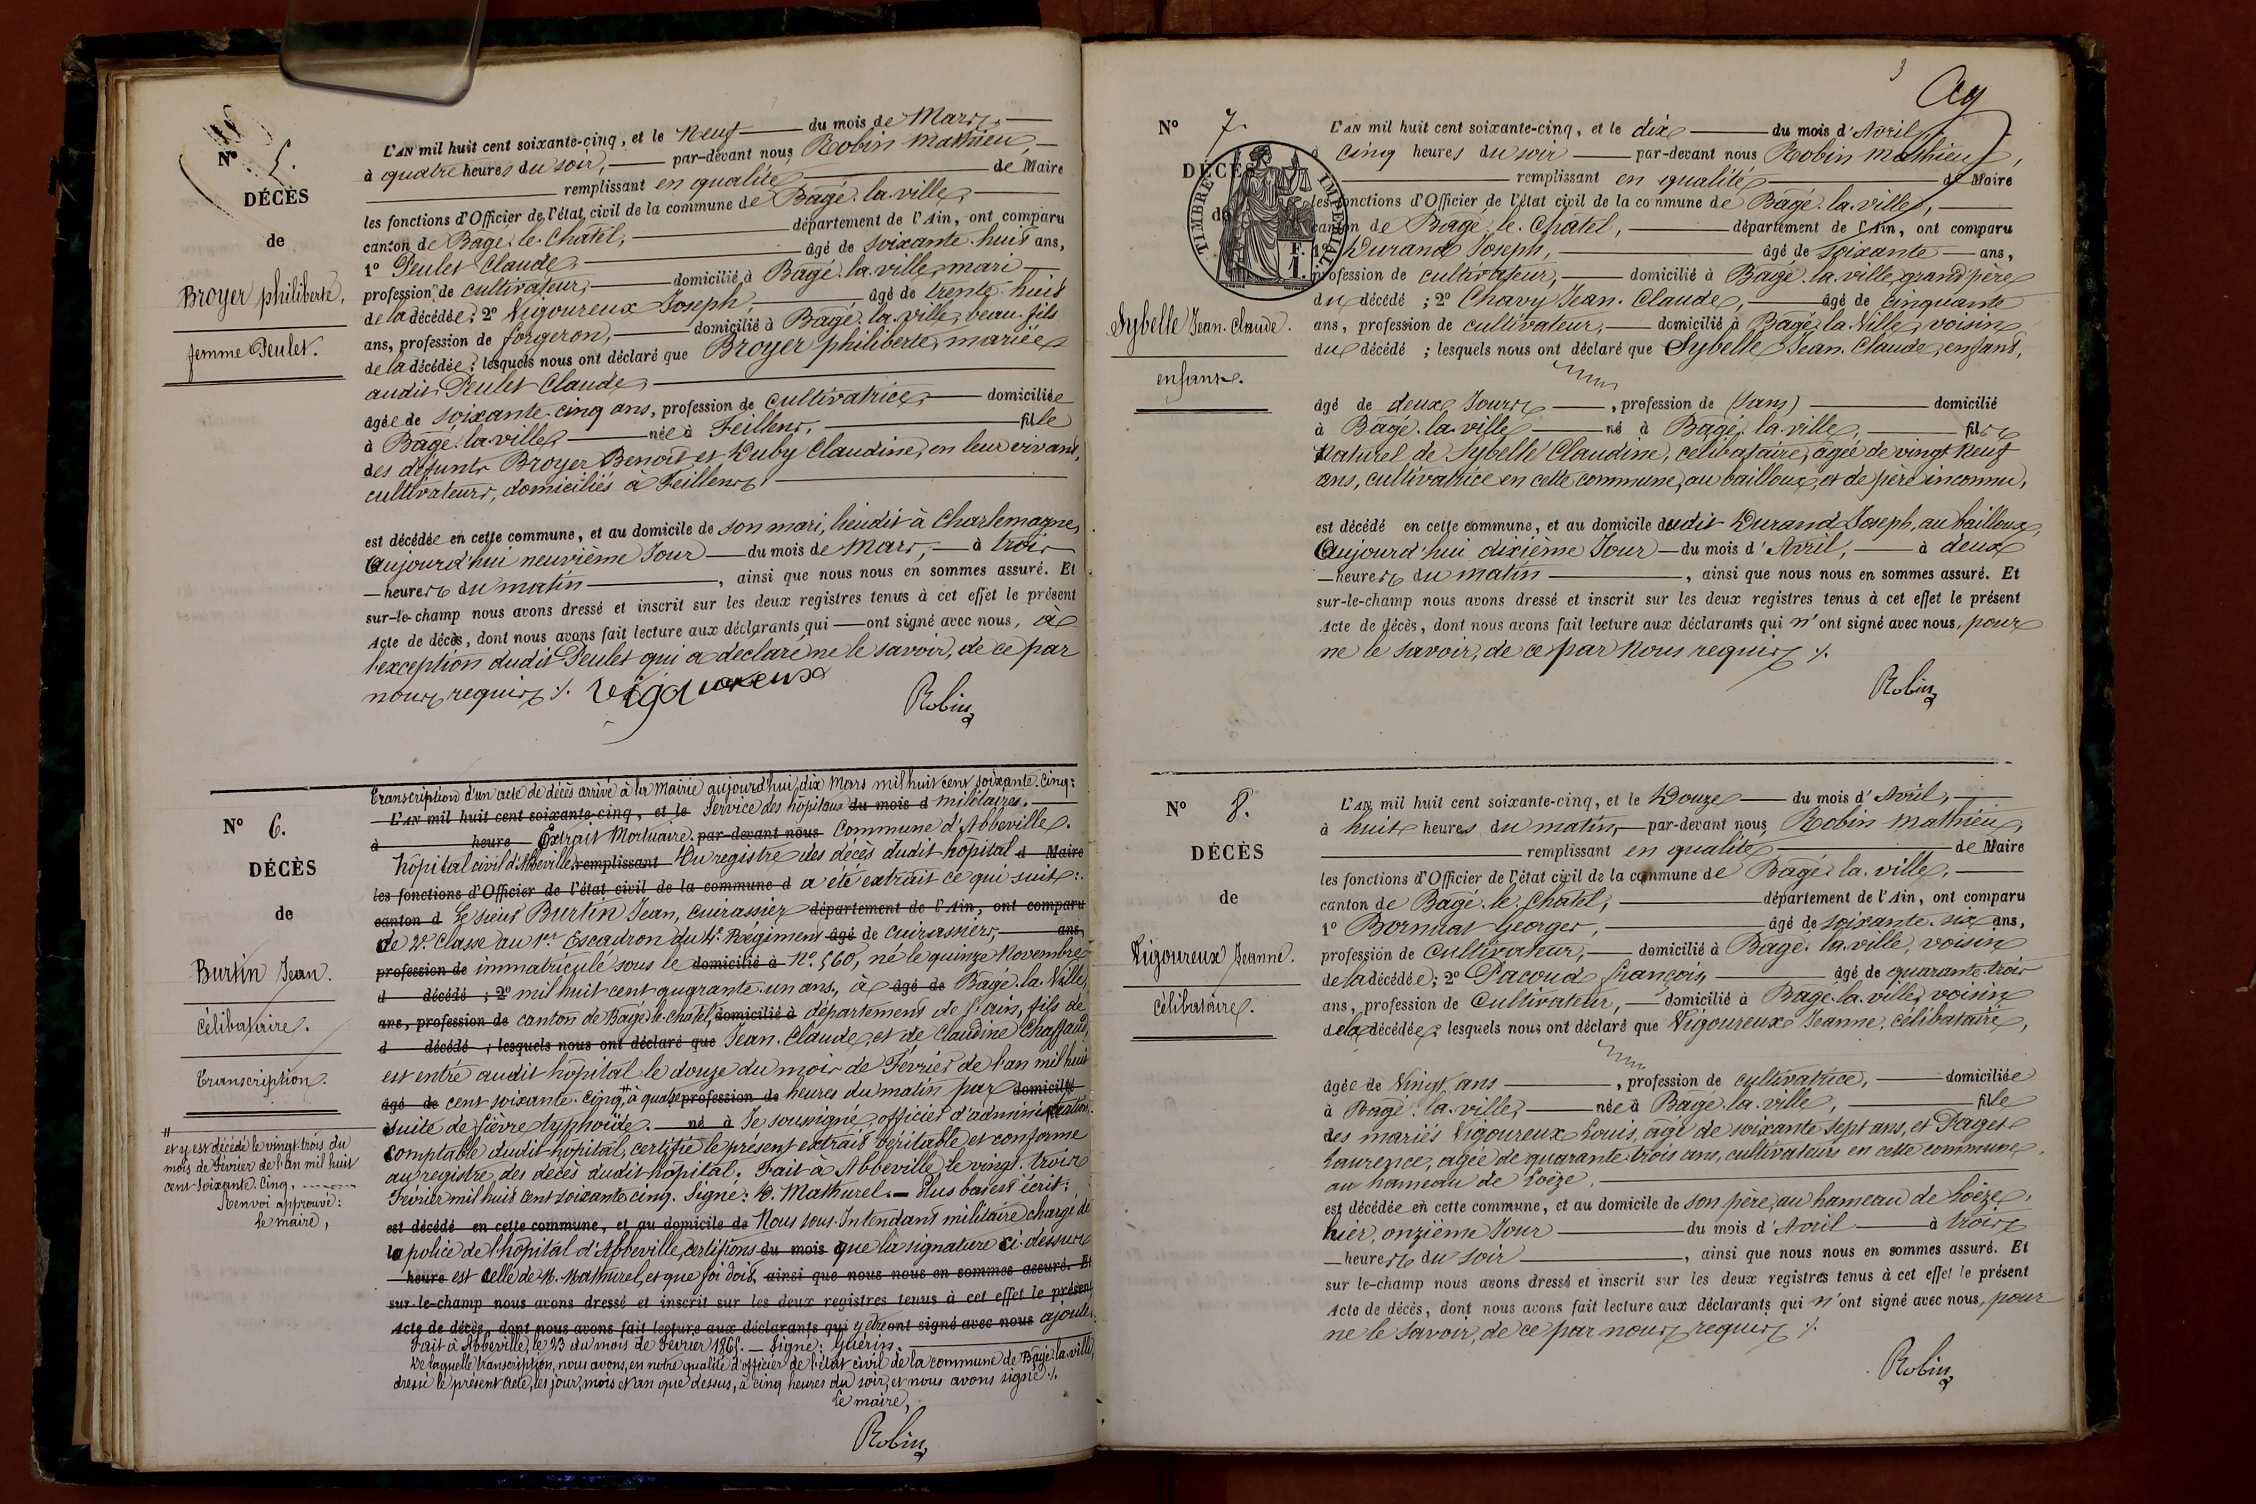 Nº 5.
DÉCÈS
de
Broyer philiberte,
femme Peulet.
L'AN mil huit cent soixante-cinq, et le Neuf du mois de Mars,
à quatre heures du soir, par-devant nous Robin Mathieu,
remplissant en qualité de Maire
les fonctions d'Officier de l'état civil de la commune de Bagé-la-ville,
canton de Bagé-le-Châtel, département de l'Ain, ont comparu
1º Peulet Claude, âgé de soixante-huit ans,
profession de cultivateur, domicilié à Bagé-la-ville, mari
de la décédée; 2º Vigoureux Joseph, âgé de trente-huit
ans, profession de forgeron, domicilié à Bagé-la-ville, beau-fils
de la décédée; lesquels nous ont déclaré que Broyer philiberte, mariée
audit Peulet Claude,
âgée de soixante-cinq ans, profession de cultivatrice, domiciliée
à Bagé-la-ville, née à Feillens, fille
des défunts Broyer Benoit et Duby Claudine, en leur vivant,
cultivateurs, domiciliés à Feillens,
est décédée en cette commune, et au domicile de son mari, lieudit à Charlemagne,
Aujourd'hui neuvième Jour du mois de Mars, à trois
heures du matin, ainsi que nous nous en sommes assuré. Et
sur-le-champ nous avons dressé et inscrit sur les deux registres tenus à cet effet le présent
Acte de décès, dont nous avons fait lecture aux déclarants qui ont signé avec nous, à
l'exception dudit Peulet qui a déclaré ne le savoir, de ce par
nous requis ./. Vigoureux
Robin
Nº 6.
DÉCÈS
de
Burtin Jean.
célibataire.
Transcription.
# et y est décédé le vingt-trois du
mois de Février de l'an mil huit
cent-soixante-cinq,
Renvoi approuvé:
le maire,
Transcription d'un acte de décès arrivé à la Mairie aujourd'hui, dix Mars mil huit cent soixante-cinq:
L'AN mil huit cent soixante-cinq, et le Service des hôpitaux du mois d militaires.
à heure Extrait Mortuaire. par-devant nous Commune d'Abbeville.
hôpital civil d'Abbeville. remplissant Du registre des décès dudit hôpital d Maire
les fonctions d'Officier de l'état civil de la commune d a été extrait ce qui suit:
canton d Le sieur Burtin Jean, cuirassier département de l'Ain, ont comparu
de 2e. classe au 1er Escadron du 4e. Régiment âgé de cuirassiers, ans,
profession de immatriculé sous le domicilié à Nº. 560, né le quinze Novembre
d décédé ; 2º mil huit cent quarante-un ans, à âgé de Bagé-la-Ville,
ans, profession de canton de Bagé-le-chatel, domicilié à département de l'ain, fils de
d décédé ; lesquels nous ont déclaré que Jean-Claude, et de Claudine Chaffaud,
est entré audit hôpital le douze du mois de Février de l'an mil huit
âgé de cent soixante-cinq, # à quatre profession de heures du matin par domicilié
suite de fièvre typhoïde. né à Je soussigné, officier d'administration
comptable dudit hôpital, certifie le présent extrait véritable et conforme
au registre des décès dudit hôpital. Fait à Abbeville, le vingt-trois
Février mil huit cent soixante cinq. Signé: E. Mathurel. Plus bas est écrit:
est décédé en cette commune, et au domicile de Nous sous-Intendant militaire chargé de
la police de l'hôpital d'Abbeville, certifions du mois que la signature ci-dessus
heure est celle de M. Mathurel, et que foi doit, ainsi que nous nous en sommes assuré. Et
sur-le-champ nous avons dressé et inscrit sur les deux registres tenus à cet effet le présent
Acte de décès, dont nous avons fait lecture aux déclarants qui y être ont signé avec nous ajoutée.
Fait à Abbeville, le 23 du mois de Février 1865. Signé: Guérin.
De laquelle transcription, nous avons, en notre qualité d'officier de l'état civil de la commune de Bagé-la-ville,
dressé le présent acte, les jour, mois et an que dessus, à cinq heures du soir, et nous avons signé ./.
Le maire,
Robin
3
Nº 7
DÉCÈS
de
TIMBRE IMPÉRIAL
1 F.
Sybelle Jean-Claude.
enfant.
L'AN mil huit cent soixante-cinq, et le dix du mois d'Avril,
à cinq heures du soir par-devant nous Robin Mathieu,
remplissant en qualité de Maire
les fonctions d'Officier de l'état civil de la commune de Bagé-la-ville,
canton de Bagé-le-Châtel, département de l'Ain, ont comparu
1º Durand Joseph, âgé de soixante ans,
profession de cultivateur, domicilié à Bagé-la-ville, grand'père
du décédé ; 2º Chavy Jean-Claude, âgé de cinquante
ans, profession de cultivateur, domicilié à Bagé-la-Ville, voisin
du décédé ; lesquels nous ont déclaré que Sybelle Jean-Claude, enfant,
âgé de deux Jours, profession de (sans) domicilié
à Bagé-la-ville né à Bagé-la-ville, fils
Naturel de Sybelle Claudine, célibataire, âgée de vingt neuf
ans, cultivatrice en cette commune, au bailloux, et de père inconnu,
est décédé en cette commune, et au domicile dudit Durand Joseph, au bailloux,
Aujourd'hui dixième Jour du mois d'Avril, à deux
heures du matin, ainsi que nous nous en sommes assuré. Et
sur-le-champ nous avons dressé et inscrit sur les deux registres tenus à cet effet le présent
Acte de décès, dont nous avons fait lecture aux déclarants qui n'ont signé avec nous, pour
ne le savoir, de ce par nous requis ./.
Robin
Nº 8.
DÉCÈS
de
Vigoureux Jeanne.
célibataire.
L'AN mil huit cent soixante-cinq, et le Douze du mois d'Avril,
à huit heures du matin, par-devant nous Robin Mathieu,
remplissant en qualité de Maire
les fonctions d'Officier de l'état civil de la commune de Bagé-la-ville,
canton de Bagé-le-Châtel, département de l'Ain, ont comparu
1º Bornuat Georges, âgé de soixante-six ans,
profession de Cultivateur, domicilié à Bagé-la-ville, voisin
de la décédée; 2º Pacoud françois, âgé de quarante-trois
ans, profession de Cultivateur, domicilié à Bagé-la-ville, voisin
de la décédée; lesquels nous ont déclaré que Vigoureux Jeanne, célibataire,
âgée de Vingt ans, profession de cultivatrice, domiciliée
à Bagé-la-ville, née à Bagé-la-ville, fille
des mariés Vigoureux Louis, âgé de soixante sept ans, et Paget
Laurence, agée de quarante-trois ans, cultivateurs en cette commune,
au hameau de Loëze,
est décédée en cette commune, et au domicile de son père, au hameau de Loëze,
hier, onzième Jour du mois d'Avril à trois
heures du soir, ainsi que nous nous en sommes assuré. Et
sur le-champ nous avons dressé et inscrit sur les deux registres tenus à cet effet le présent
Acte de décès, dont nous avons fait lecture aux déclarants qui n'ont signé avec nous, pour
ne le savoir, de ce par nous requis ./.
Robin